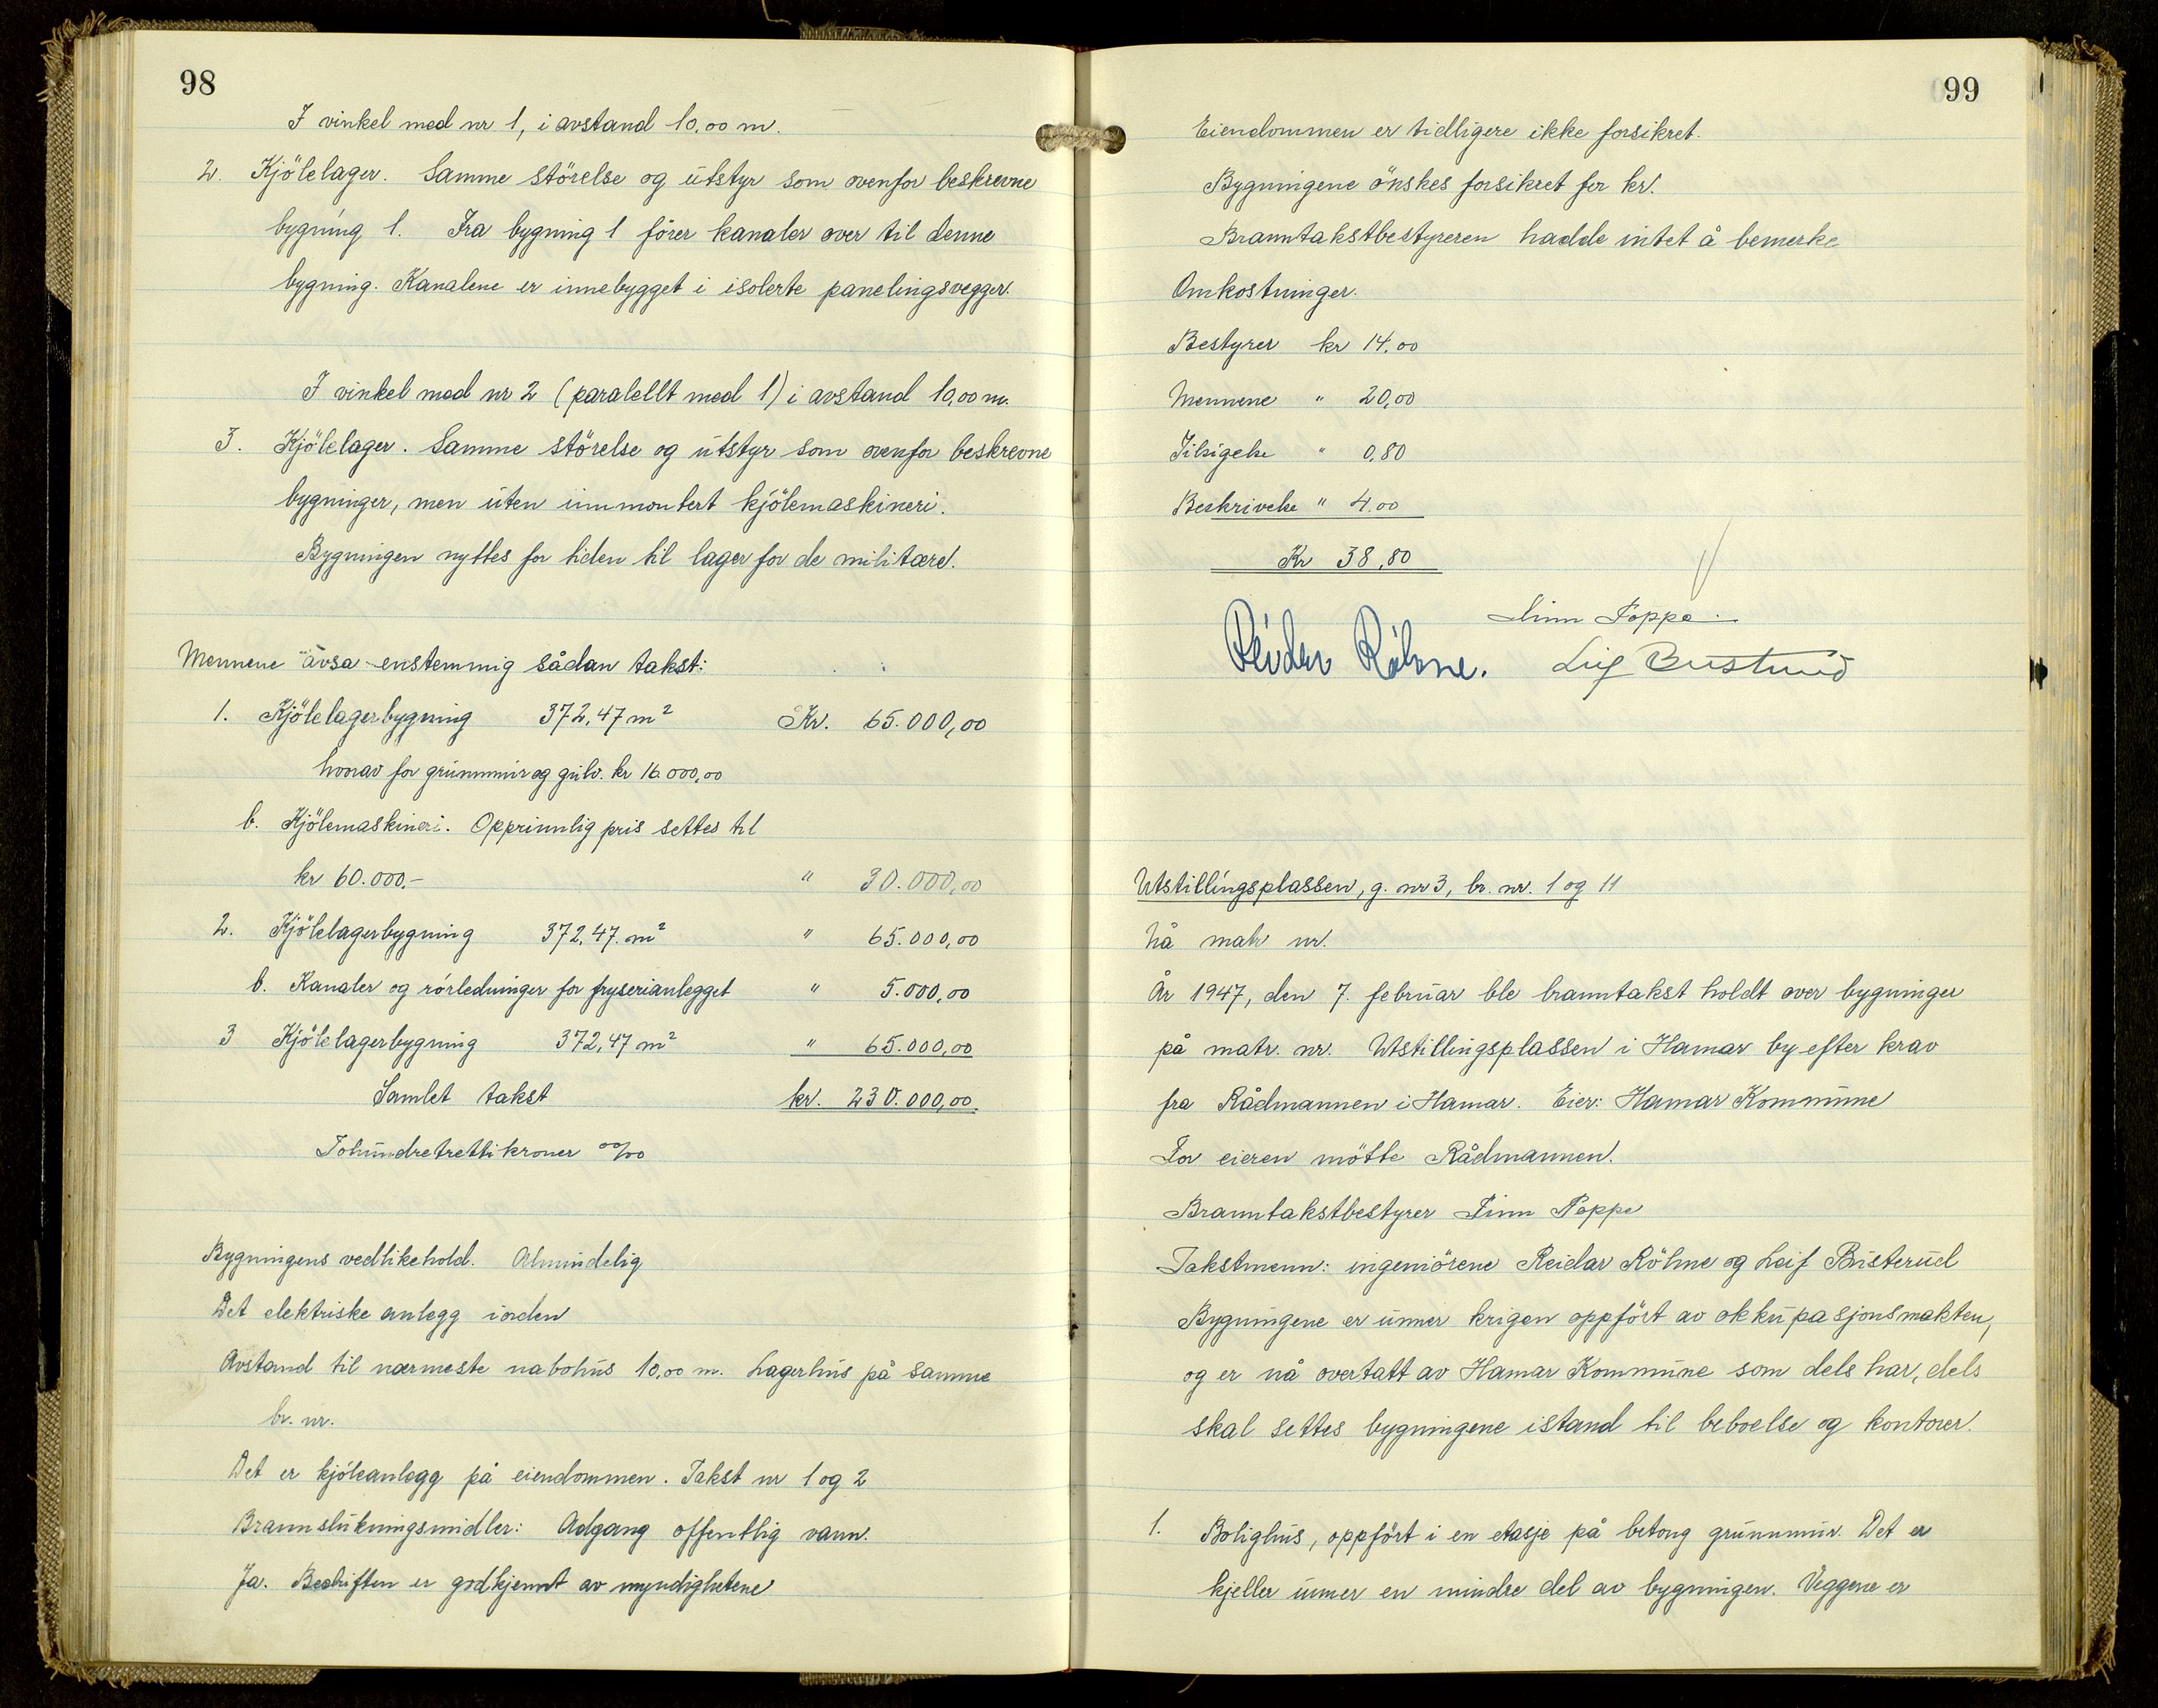 98
I vinkel med nr 1, i avstand 10,00 m.
2. Kjölelager. Samme störelse og utstyr som ovenfor beskrevne
bygning 1. Fra bygning 1 förer kanaler over til denne
bygning. Kanalene er innebygget i isolerte panelingsvegger.
I vinkel med nr 2 (paralellt med 1) i avstand 10,00 m.
3. Kjölelager. Samme störelse og utstyr som ovenfor beskrevne
bygninger, men uten innmontert kjölemaskineri.
Bygningen nyttes for tiden til lager for de militære.
Mennene avsa enstemmig sådan takst:
1. Kjölelagerbygning 372,47 m² Kr. 65.000,00
hvorav for grunnmur og gulv. kr 16.000,00
b. Kjölemaskineri. Opprinnlig pris settes til
kr 60.000.- " 30.000,00
2. Kjölelagerbygning 372,47 m² " 65.000,00
b. Kanaler og rörledninger for fryserianlegget " 5.000,00
3 Kjölelagerbygning 372,47 m² " 65.000,00
Samlet takst kr. 230.000,00.
Tohundretrettikroner 00/00
Bygningens vedlikehold. Almindelig
Det elektriske anlegg iorden
Avstand til nærmeste nabohus 10,00 m. Lagerhus på samme
br. nr.
Det er kjöleanlegg på eiendommen. Takst nr 1 og 2
Brannslukningsmidler: Adgang offentlig vann.
Ja. Bedriften er godkjennt av myndighetene
99
Eiendommen er tidligere ikke forsikret.
Bygningene önskes forsikret for kr.
Branntakstbestyreren hadde intet å bemerke
Omkostninger.
Bestyrer kr 14,00
Mennene " 20,00
Tilsigelse " 0,80
Beskrivelse " 4,00
Kr 38,80
Finn Poppe.
Reidar Röhne. Leif Busterud
Utstillingsplassen, g. nr 3, br. nr. 1 og 11
Nå matr nr.
År 1947, den 7. februar ble branntakst holdt over bygninger
på matr. nr. Utstillingsplassen i Hamar by efter krav
fra Rådmannen i Hamar. Eier: Hamar Kommune
For eieren mötte Rådmannen.
Branntakstbestyrer Finn Poppe
Takstmenn: ingeniörene Reidar Röhne og Leif Busterud
Bygningene er unner krigen oppfört av okkupasjonsmakten,
og er nå overtatt av Hamar Kommune som dels har, dels
skal settes bygningene istand til beboelse og kontorer.
1. Bolighus, oppfört i en etasje på betong grunnmur. Det er
kjeller unner en mindre del av bygningen. Veggene er